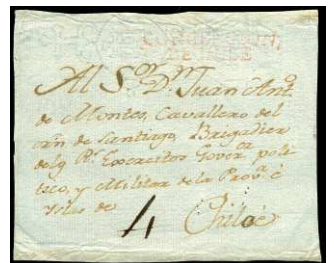 Al S.or D.n Juan Ant.o
de Montes, Cavallero del
orn de Santiago, Brigadier
de R.s Exercitos Gover.r poli
tico, y Militar de la Prov.a é
Yslas de
4 Chiloé